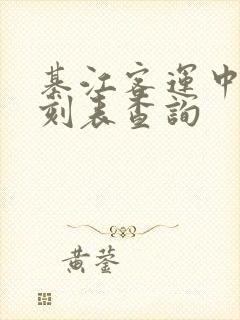 綦江客運中
刻表查詢
黃蓥